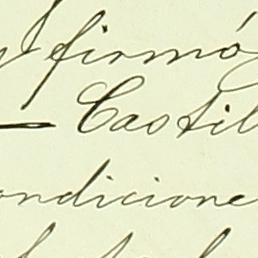 y firmó
— Castil
ondicione